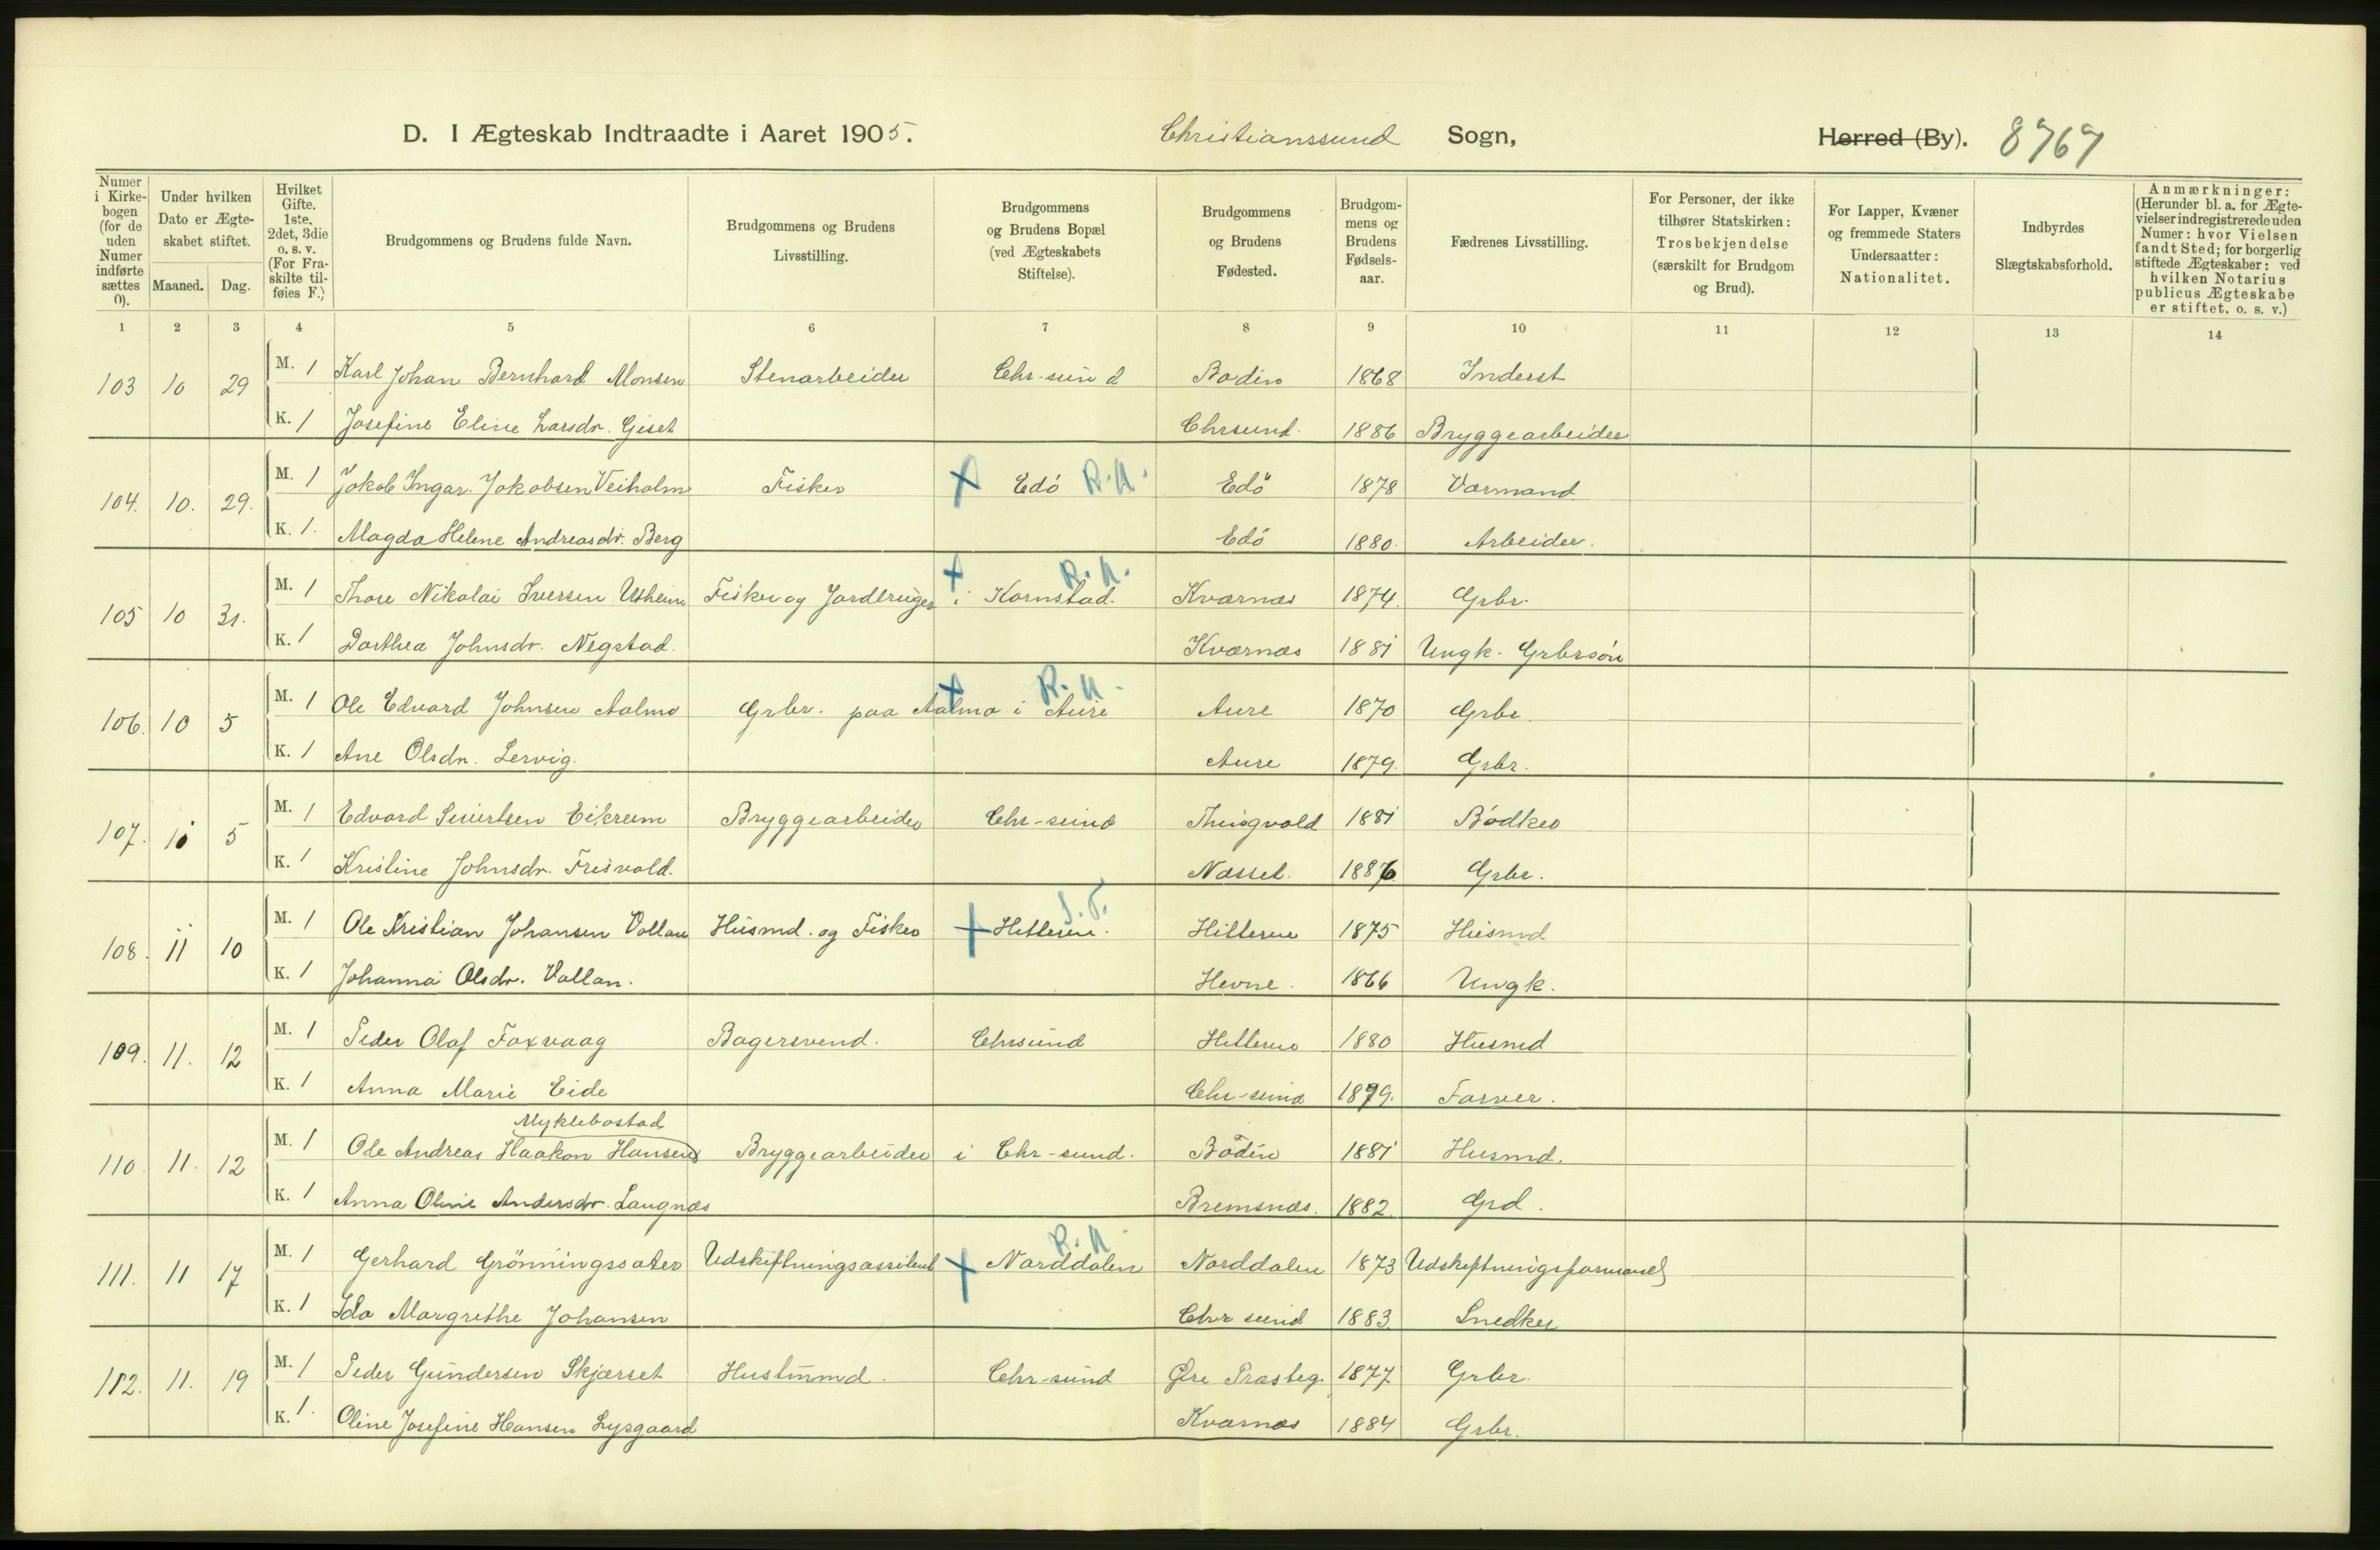 D. I Ægteskab Indtraadte i Aaret 1905. Christianssund Sogn, Herred (By). 8767
Numer i Kirkebogen (for de uden Numer indførte sættes 0).
Under hvilken Dato er Ægteskabet stiftet.
Maaned. Dag.
Hvilket Gifte. 1ste. 2det, 3die o. s. v. (For Fraskilte tilføies F.)
Brudgommens og Brudens fulde Navn.
Brudgommens og Brudens Livsstilling.
Brudgommens og Brudens Bopæl (ved Ægteskabets Stiftelse).
Brudgommens og Brudens Fødested.
Brudgommens og Brudens Fødselsaar.
Fædrenes Livsstilling.
For Personer, der ikke tilhører Statskirken: Trosbekjendelse (særskilt for Brudgom og Brud).
For Lapper, Kvæner og fremmede Staters Undersaatter: Nationalitet.
Indbyrdes Slægtskabsforhold.
Anmærkninger: (Herunder bl. a. for Ægtevielser indregistrerede uden Numer: hvor Vielsen fandt Sted; for borgerlig stiftede Ægteskaber: ved hvilken Notarius publicus Ægteskabe er stiftet, o. s. v.)
1 2 3 4 5 6 7 8 9 10 11 12 13 14
103 10 29 M. 1 Karl Johan Bernhard Monsen Stenarbeider Chr-sund Bodin 1868 Inderst
K. 1 Josefine Eline Larsdr. Giset Chrsund. 1886 Bryggearbeider
104. 10. 29. M. 1 Jakob Ingar. Jakobsen Veiholm Fisker Edö R.A. Edö 1878 Vormand
K. 1. Magda Helene Andreasdr. Berg Edö 1880. Arbeider.
105 10 31. M. 1 Thore Nikolai Iversen Utheim Fisker og Jordbruger i Kornstad. R.A. Kværnæs 1874. Grbr.
K. 1 Dorthea Johnsdr. Negstad. Kværnæs 1881 Ungk. Grbrsön
106. 10 5 M. 1 Ole Edvard Johnsen Aalmo Grbr. paa Aalmo i Aure R.A. Aure 1870 Grbr.
K. 1 Ane Olsdr. Lervig. Aure 1879. Grbr.
107. 10 5 M. 1 Edvard Sivertsen Eikrem Bryggearbeider Chr-sund Thingvold 1881 Bödker
K. 1 Kristine Johnsdr. Frisvold. Næsset. 1886 Grbr.
108. 11 10 M. 1 Ole Kristian Johansen Vollan Husmd. og Fisker Hitteren. S.T. Hitteren 1875 Husmd
K. 1 Johanna Olsdr. Vollan. Hevne. 1866 Ungk.
109. 11. 12 M. 1 Peder Olaf Foxvaag Bagersvend. Chrsund Hitteren 1880 Husmd
K. 1 Anna Marie Eide Chr-sund 1879. Farver.
Myklebostad
110. 11. 12 M. 1 Ole Andreas Haakon Hansen Bryggearbeider i Chr-sund. Bodin 1881 Husmd.
K. 1 Anna Oline Andersdr. Langnæs Bremsnæs. 1882. Grd.
111. 11 17 M. 1 Gerhard Grönningssæter Udskiftningsassistent Norddalen R.A. Norddalen 1873 Udskiftningsformand
K. 1 Ida Margrethe Johansen Chr sund 1883. Snedker
112. 11. 19 M. 1 Peder Gundersen Skjærset Hustmmd. Chr-sund Öre Præsteg. 1877 Grbr.
K. 1. Oline Josefine Hansen Lysgaard Kværnæs 1884 Grbr.